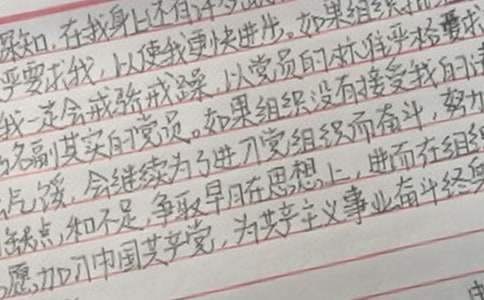 深知,在我身上还有许多
严要求我,以使我更快进步。如果组织批准
我一定会戒骄戒躁,以党员的标准严格要求
名副其实的党员。如果组织没有接受我的请
气馁,会继续为了进入党组织而奋斗,努力
缺点,和不足,争取早日在思想上,进而在组织
愿加入中国共产党,为共产主义事业奋斗终身